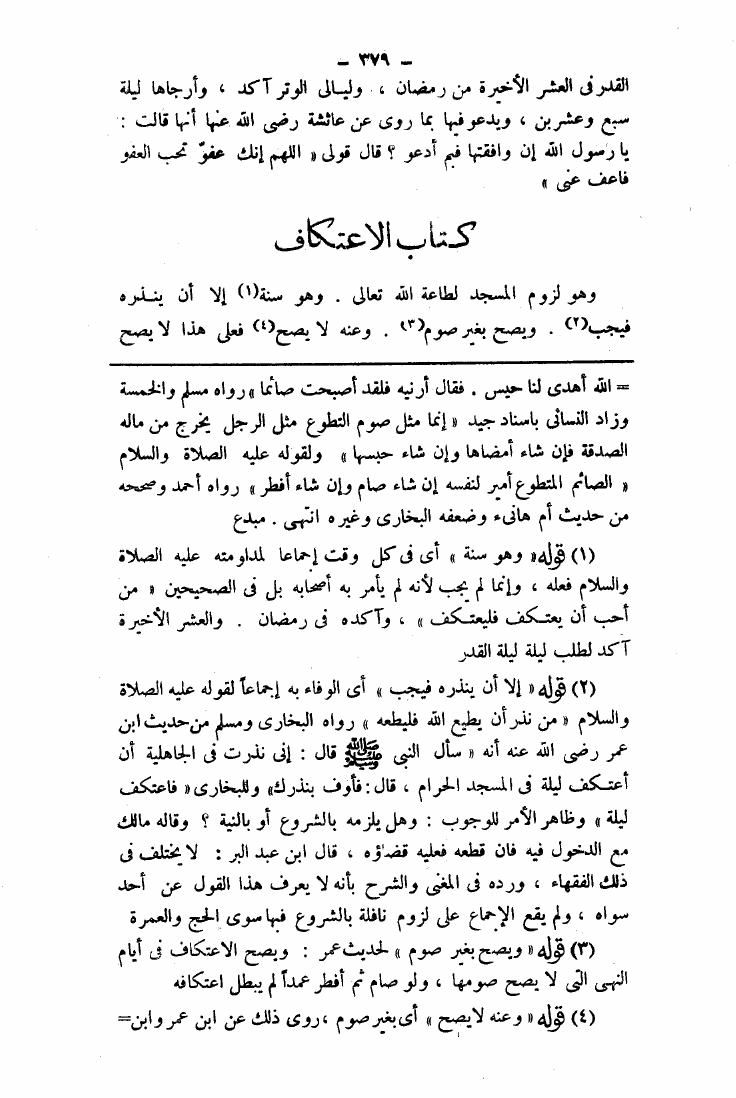 – ٣٧٩ –
القدر فى العشر الأخيرة من رمضان ، وليالى الوتر آكد ، وأرجاها ليلة
سبع وعشرين ، ويدعو فيها بما روى عن عائشة رضى الله عنها أنها قالت :
يا رسول الله إن وافقتها فبم أدعو ؟ قال قولى « اللهم إنك عفوّ تحب العفو
فاعف عنى »
كتاب الاعتكاف
وهو لزوم المسجد لطاعة الله تعالى . وهو سنة(١) إلا أن ينذره
فيجب(٢) . ويصح بغير صوم(٣) . وعنه لا يصح(٤) فعلى هذا لا يصح
= الله أهدى لنا حيس . فقال أرنيه فلقد أصبحت صائما » رواه مسلم والخمسة
وزاد النسائى باسناد جيد « إنما مثل صوم التطوع مثل الرجل يخرج من ماله
الصدقة فإن شاء أمضاها وإن شاء حبسها » ولقوله عليه الصلاة والسلام
« الصائم المتطوع أمير لنفسه إن شاء صام وإن شاء أفطر » رواه أحمد وصححه
من حديث أم هانىء وضعفه البخارى وغيره انتهى . مبدع
(١) قوله « وهو سنة » أى فى كل وقت إجماعا لمداومته عليه الصلاة
والسلام فعله ، وإنما لم يجب لأنه لم يأمر به أصحابه بل فى الصحيحين « من
أحب أن يعتكف فليعتكف » ، وآكده فى رمضان . والعشر الأخيرة
آكد لطلب ليلة ليلة القدر
(٢) قوله « إلا أن ينذره فيجب » أى الوفاء به إجماعاً لقوله عليه الصلاة
والسلام « من نذر أن يطيع الله فليطعه » رواه البخارى ومسلم من حديث ابن
عمر رضى الله عنه أنه « سأل النبى ﷺ قال : إنى نذرت فى الجاهلية أن
أعتكف ليلة فى المسجد الحرام ، قال : فأوف بنذرك » وللبخارى « فاعتكف
ليلة » وظاهر الأمر للوجوب : وهل يلزمه بالشروع أو بالنية ؟ وقاله مالك
مع الدخول فيه فان قطعه فعليه قضاؤه ، قال ابن عبد البر : لا يختلف فى
ذلك الفقهاء ، ورده فى المغنى والشرح بأنه لا يعرف هذا القول عن أحد
سواه ، ولم يقع الإجماع على لزوم نافلة بالشروع فيها سوى الحج والعمرة
(٣) قوله « ويصح بغير صوم » لحديث عمر : ويصح الاعتكاف فى أيام
النهى التى لا يصح صومها ، ولو صام ثم أفطر عمداً لم يبطل اعتكافه
(٤) قوله « وعنه لا يصح » أى بغير صوم ، روى ذلك عن ابن عمر وابن=